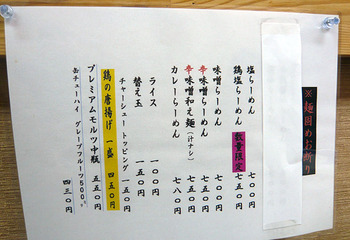 ※麺固めお断り
塩らーめん 五〇〇円
鶏塩らーめん 数量限定 五五〇円
味噌らーめん 五〇〇円
辛味噌らーめん 五五〇円
辛味噌和え麺(汁ナシ) 七五〇円
カレーらーめん 七八〇円
ライス 一〇〇円
替え玉 一五〇円
チャーシュートッピング 一五〇円
鶏の唐揚げ 一盛 四五〇円
プレミアムモルツ中瓶 五五〇円
缶チューハイ グレープフルーツ500ml 四三〇円